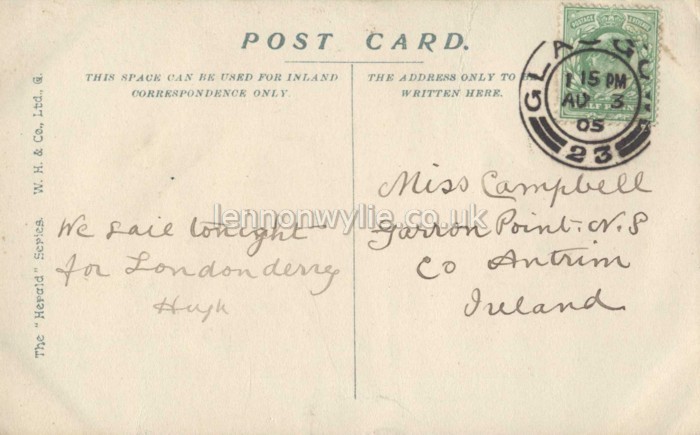 POST CARD.
THIS SPACE CAN BE USED FOR INLAND
CORRESPONDENCE ONLY.
THE ADDRESS ONLY TO
WRITTEN HERE.
GLASGOW
1 15 PM
AU 3
05
23
The "Herald" Series. W. H. & Co., Ltd., G.
We sail tonight
for Londonderry
Hugh
Miss Campbell
Garron Point. N.S
Co Antrim
Ireland
lennonwylie.co.uk